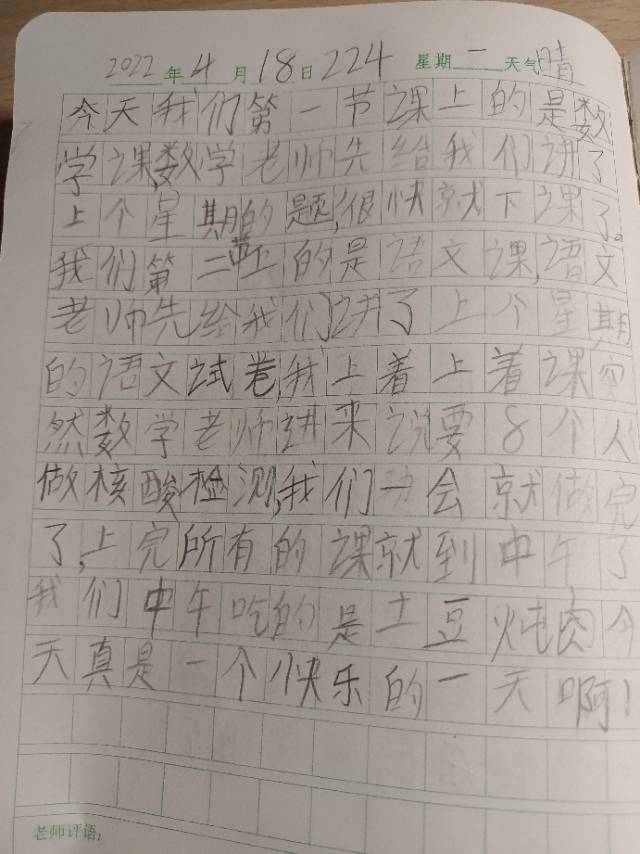 2022年4月18日224 星期一天气晴
今天我们第一节课上的是数
学课,数学老师先给我们讲了
上个星期的题,很快就下课了。
我们第二节上的是语文课,语文
老师先给我们讲了上个星期
的语文试卷,我上着上着课突
然数学老师进来说要8个人
做核酸检测,我们一会就做完
了,上完所有的课就到中午了
我们中午吃的是土豆炖肉今
天真是一个快乐的一天啊!
老师评语: